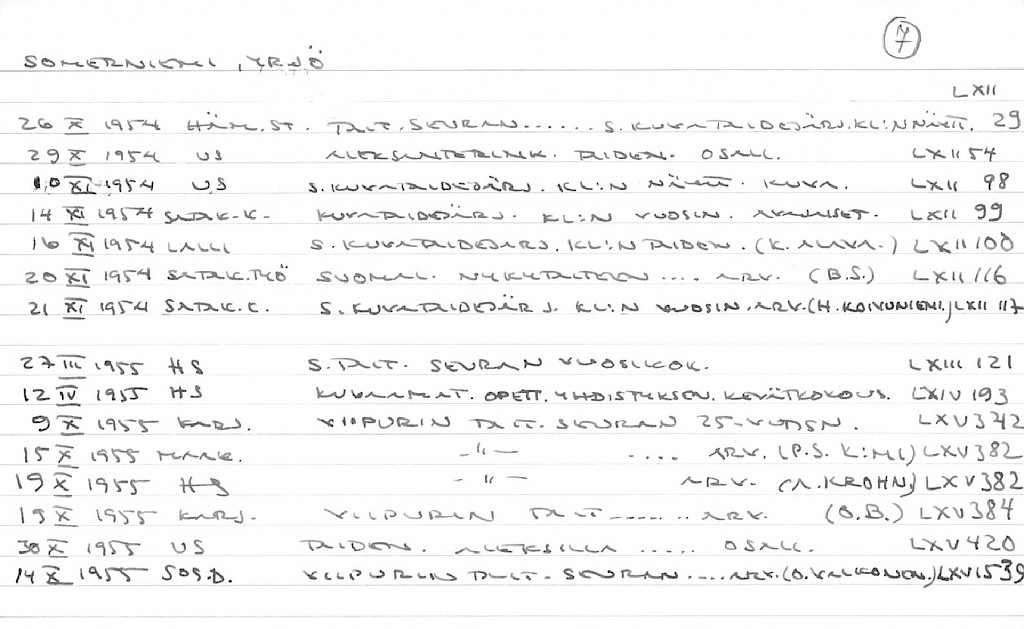 7
SOMERNIEMI, YRJÖ
LXII
26 X 1954 HÄM.ST. TAIT. SEURAN...... S. KUVATAIDEJÄRJ. KL:N NÄYTT. 29
29 X 1954 US ALEKSANTERINK. TAIDEN. OSALL. LXII 54
10 XI 1954 US S. KUVATAIDEJÄRJ. KL:N NÄYTT. KUVA. LXII 98
14 XI 1954 SATAK.K. KUVATAIDEJÄRJ. KL:N VUOSIN. AVAJAISET. LXII 99
16 XI 1954 LALLI S. KUVATAIDEJÄRJ. KL:N TAIDEN. (K. ALAVA.) LXII 100
20 XI 1954 SATAK.TYÖ SUOMAL. NYKYTAITEEN .... ARV. (B.S.) LXII 116
21 XI 1954 SATAK.K. S. KUVATAIDEJÄRJ. KL:N VUOSIN. ARV. (H. KOIVUNIEMI.) LXII 117
27 III 1955 HS S. TAIT. SEURAN VUOSIKOK. LXIII 121
12 IV 1955 HS KUVAAMAT. OPETT. YHDISTYKSEN. KEVÄTKOKOUS. LXIV 193
9 X 1955 KARJ. VIIPURIN TAIT. SEURAN 25-VUODEN. LXV 342
15 X 1955 MAAK. -"- .... ARV. (P.S. K:MI) LXV 382
19 X 1955 HS -"- ARV. (A. KROHN.) LXV 382
19 X 1955 KARJ. VIIPURIN TAIT....... ARV. (O.B.) LXV 384
30 X 1955 US TAIDEN. ALEKSILLA ..... OSALL. LXV 420
14 X 1955 SOS.D. VIIPURIN TAIT. SEURAN .... ARV. (O. VALKONEN.) LXVI 539